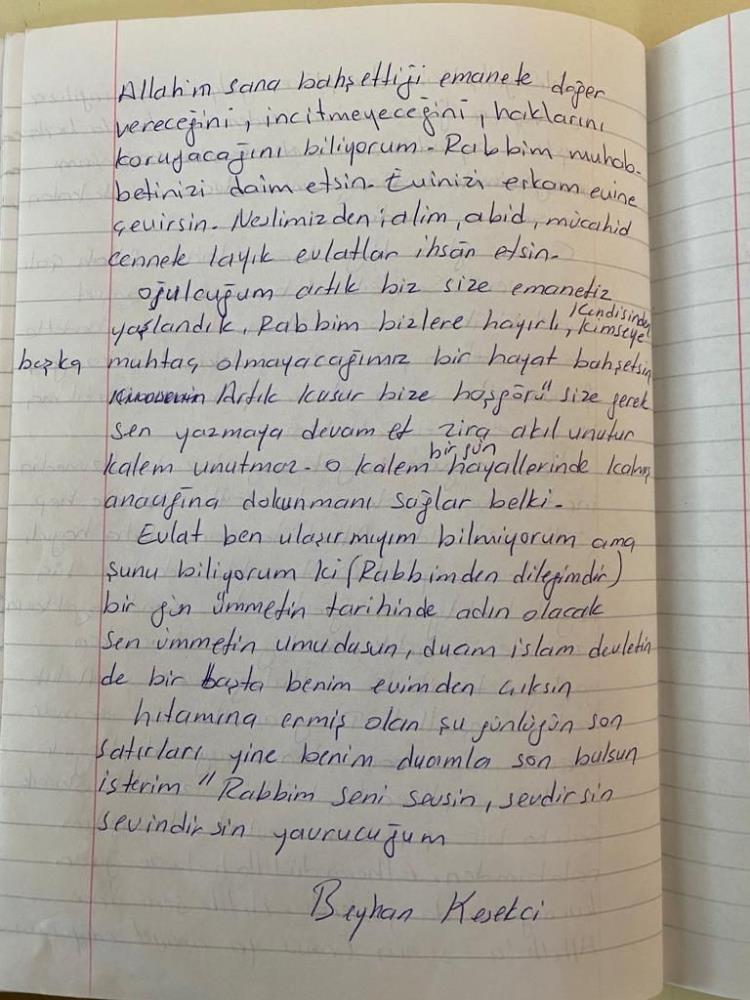 Allah'ım sana bahşettiği emanete değer
vereceğini, incitmeyeceğini, haklarını
koruyacağını biliyorum. Rabbim muhab-
betinizi daim etsin. Evinizi erkam evine
çevirsin. Neslimizden; alim, abid, mücahid
cennete layık evlatlar ihsân etsin.
oğulcuğum artık biz size emanetiz
yaşlandık, Rabbim bizlere hayırlı, kendisinden kimseye
başka muhtaç olmayacağımız bir hayat bahşetsin
Artık kusur bize hoşgörü" size gerek
sen yazmaya devam et zira akıl unutur
kalem unutmaz. o kalem bir gün hayallerinde kalmış
anacığına dokunmanı sağlar belki.
Evlat ben ulaşırmıyım bilmiyorum ama
şunu biliyorum ki (Rabbimden dileğimdir)
bir gün ümmetin tarihinde adın olacak
sen ümmetin umudusun, duam islam devletin
de bir başta benim evimden çıksın
hıtamına ermiş olan şu günlüğün son
satırları yine benim duamla son bulsun
isterim "Rabbim seni sevsin, sevdirsin
sevindirsin yavrucuğum
Beyhan Kesekci